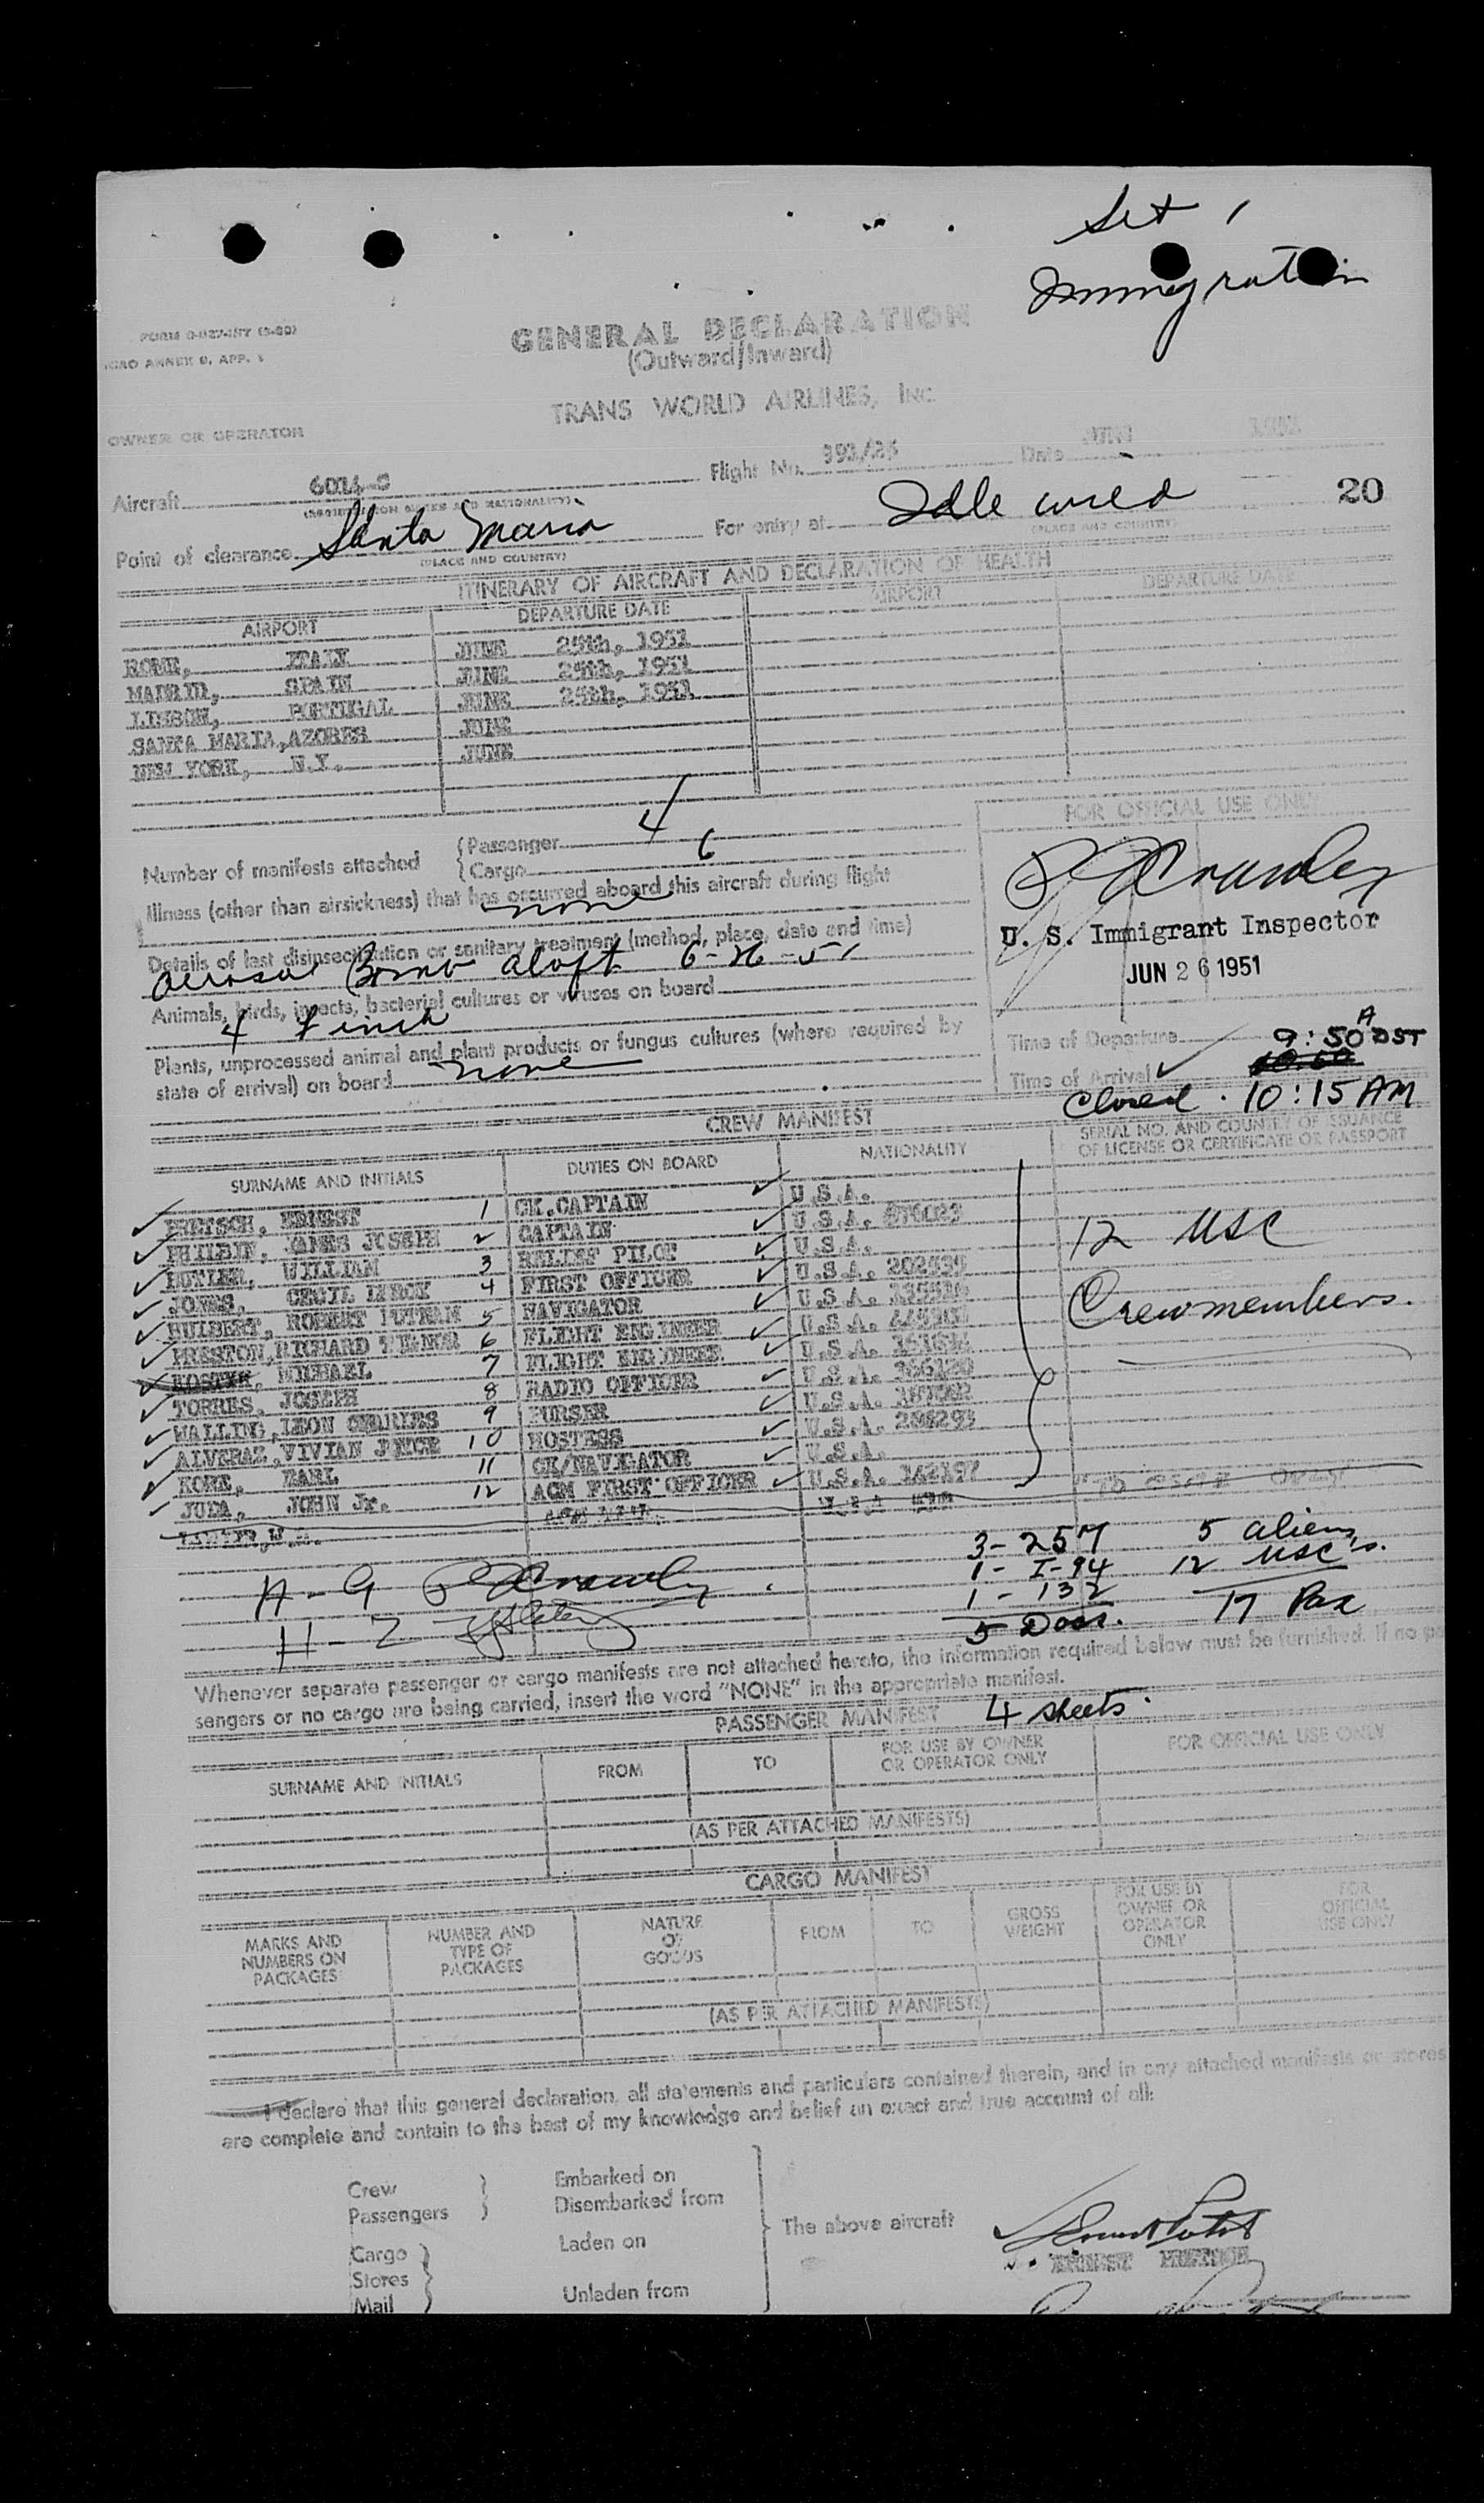 Set 1
Immigration
GENERAL DECLARATION
(Outward/Inward)
TRANS WORLD AIRLINES, INC
OWNER OR OPERATOR
Aircraft 6014-C Flight No. Date
Point of clearance Santa Maria For entry at Idle wild 20
(PLACE AND COUNTRY) (PLACE AND COUNTRY)
ITINERARY OF AIRCRAFT AND DECLARATION OF HEALTH
AIRPORT DEPARTURE DATE AIRPORT DEPARTURE DATE
ROME, ITALY JUNE 25th, 1951
MADRID, SPAIN JUNE 25th, 1951
LISBON, PORTUGAL JUNE 25th, 1951
SANTA MARIA, AZORES JUNE
NEW YORK, N.Y. JUNE
FOR OFFICIAL USE ONLY
Number of manifests attached
Passenger 4
Cargo 6
Illness (other than airsickness) that has occurred aboard this aircraft during flight
none
U. S. Immigrant Inspector
JUN 26 1951
Details of last disinsectisation or sanitary treatment (method, place, date and time)
Aerosol Bomb aloft 6-26-51
Animals, birds, insects, bacterial cultures or viruses on board
4 Finch
Plants, unprocessed animal and plant products or fungus cultures (where required by
state of arrival) on board none
Time of Departure
Time of Arrival 9:50 A DST
Closed 10:15 AM
CREW MANIFEST
SURNAME AND INITIALS DUTIES ON BOARD NATIONALITY SERIAL NO. AND COUNTRY OF ISSUANCE
OF LICENSE OR CERTIFICATE OR PASSPORT
ERNEST 1 CK.CAPTAIN U.S.A.
PHILBIN, JAMES JOSEPH 2 CAPTAIN U.S.A.
BUTLER, WILLIAM 3 RELIEF PILOT U.S.A.
JONES, CECIL LEROY 4 FIRST OFFICER U.S.A.
HULBERT, ROBERT PUTNAM 5 NAVIGATOR U.S.A.
PRESTON, RICHARD 6 FLIGHT ENGINEER U.S.A.
MICHAEL 7 FLIGHT ENGINEER U.S.A.
TORRES, JOSEPH 8 RADIO OFFICER U.S.A.
WALLING, LEON CHARLES 9 PURSER U.S.A.
ALVERAZ, VIVIAN JOYCE 10 HOSTESS U.S.A.
KORE, EARL 11 CK/NAVIGATOR U.S.A.
JUDA, JOHN Jr. 12 ACM FIRST OFFICER U.S.A. 142197
12 USC
Crewmembers.
3- 257 5 aliens
1- I-94 12 USC's.
1- 132
5 Docs. 17 Pax
Whenever separate passenger or cargo manifests are not attached hereto, the information required below must be furnished. If no pas
sengers or no cargo are being carried, insert the word "NONE" in the appropriate manifest.
PASSENGER MANIFEST 4 sheets.
SURNAME AND INITIALS FROM TO FOR USE BY OWNER
OR OPERATOR ONLY FOR OFFICIAL USE ONLY
(AS PER ATTACHED MANIFESTS)
CARGO MANIFEST
MARKS AND
NUMBERS ON
PACKAGES
NUMBER AND
TYPE OF
PACKAGES
NATURE
OF
GOODS
FROM
TO
GROSS
WEIGHT
FOR USE BY
OWNER OR
OPERATOR
ONLY
FOR
OFFICIAL
USE ONLY
(AS PER ATTACHED MANIFESTS)
I declare that this general declaration, all statements and particulars contained therein, and in any attached manifests or stores
are complete and contain to the best of my knowledge and belief an exact and true account of all:
Crew
Passengers
Embarked on
Disembarked from
Cargo
Stores
Mail
Laden on
Unladen from
The above aircraft
ERNEST